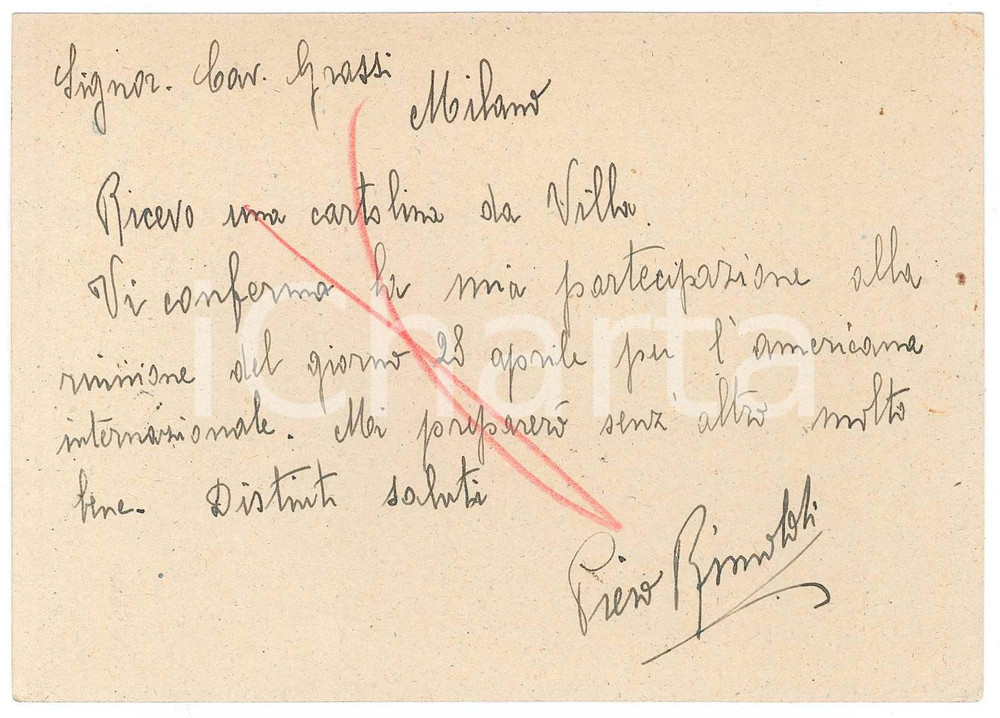 Signor. Cav. Grassi
Milano
Ricevo una cartolina da Villa.
Vi confermo la mia partecipazione alla
riunione del giorno 28 aprile per l'americana
internazionale. Mi preparerò senz'altro molto
bene. Distinti saluti
Piero Rimoldi
iCharta